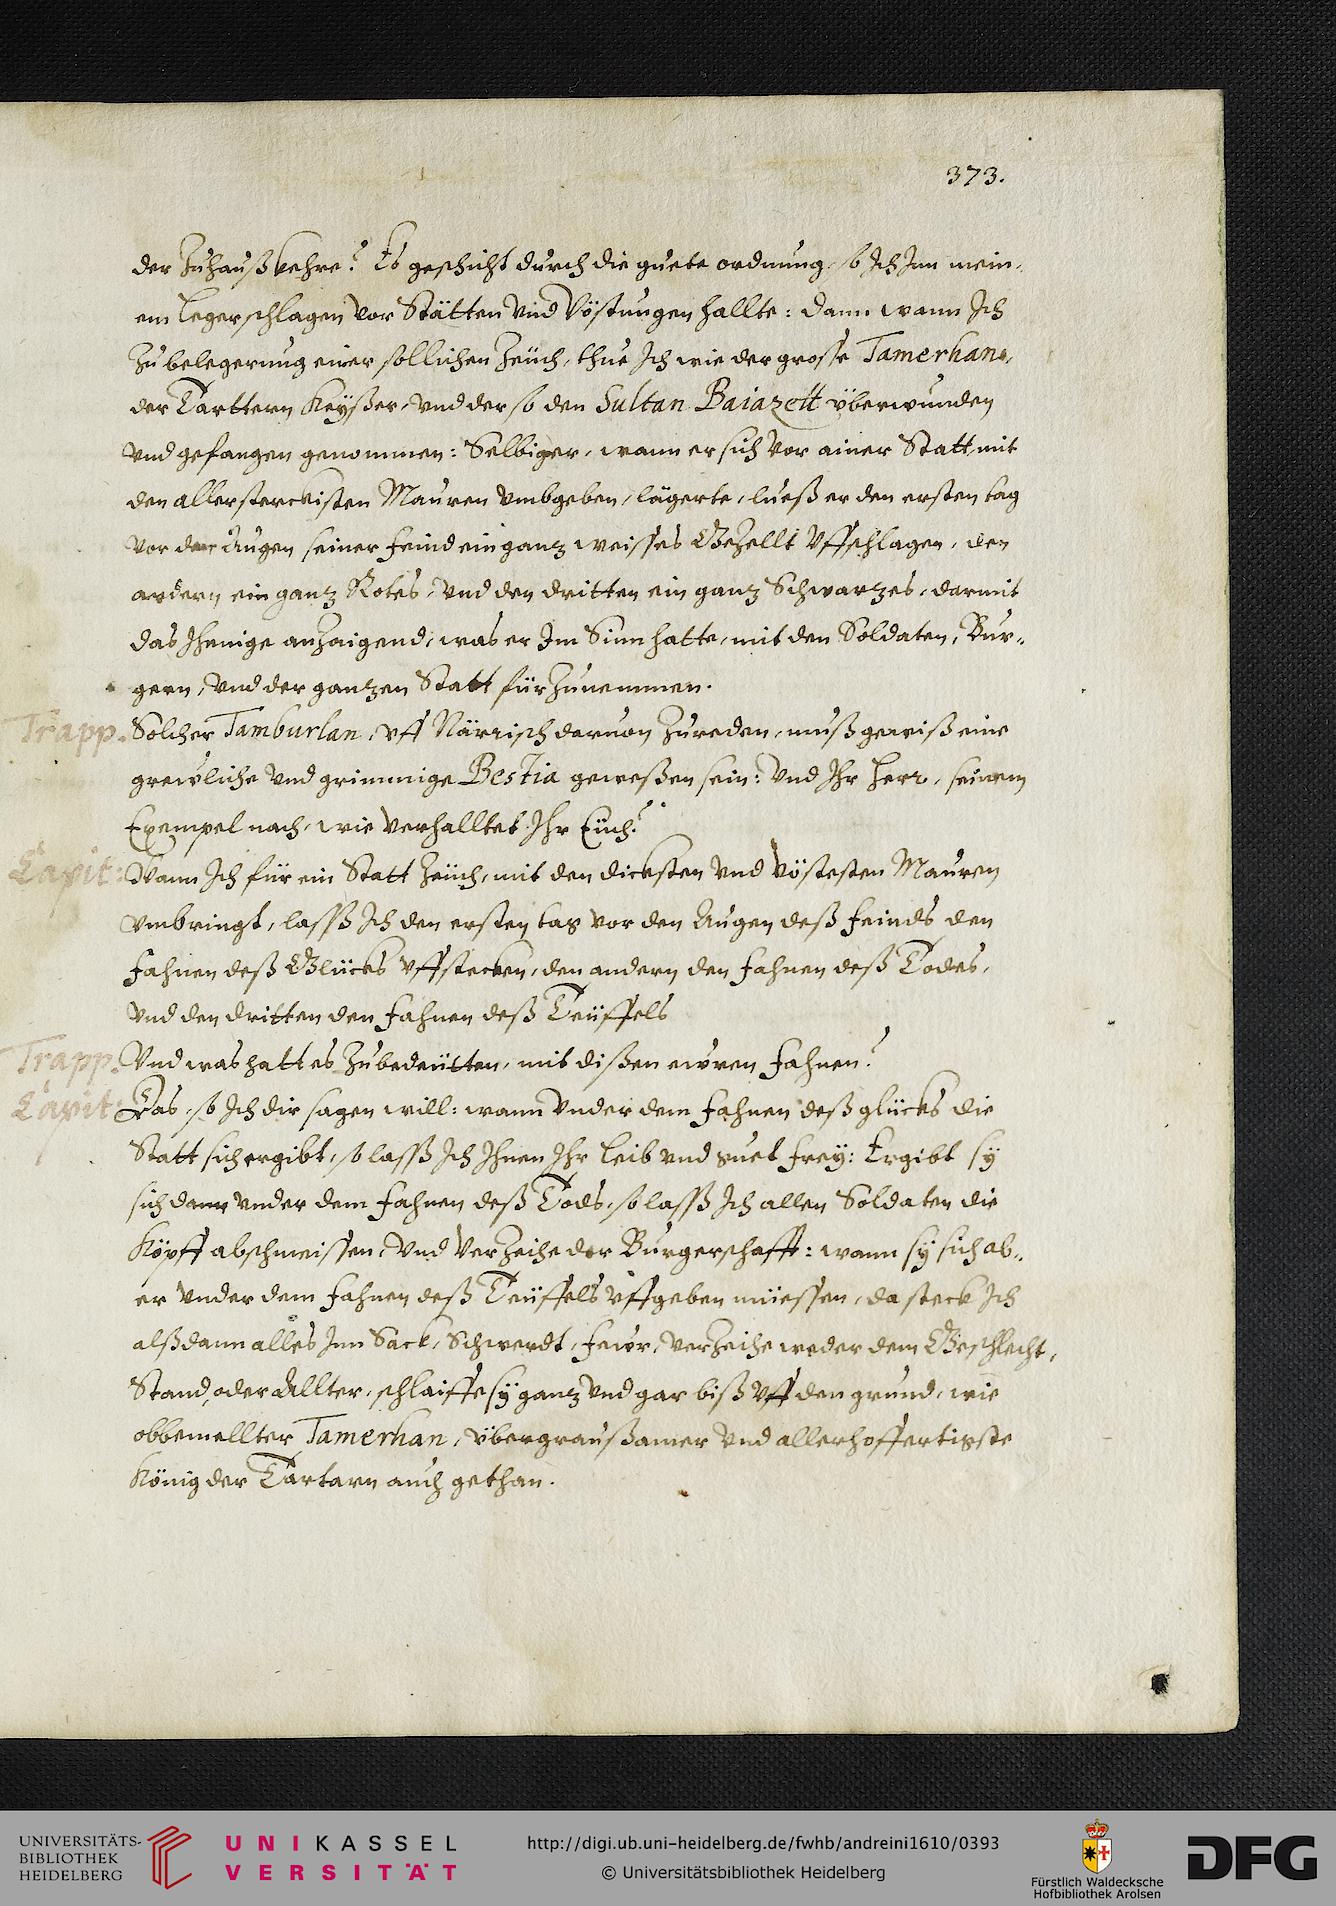 373.
der Zuhauß kehre? Es geschicht durch die guete ordnung, so Ich Inn mein-
em Legerschlagen vor Stätten vnd Vöstungen hallte: dann wann Ich
Zu belegerung einer sollichen Zeüch, thue Ich wie der grosse Tamerhane,
der Tarttern Keyßer, vnd der so den Sultan Baiazett überwunden
vnd gefangen genommen: Selbiger, wann er sich vor ainer Statt, mit
den allersterckisten Mauren vmbgeben, lägerte, lueß er den ersten tag
vor den Augen seiner Feind ein gantz weisses Gezellt Vffschlagen, den
andern ein gantz Rotes, vnd den dritten ein gantz Schwartzes, darmit
das Ihenige anzaigend, was er Im Sinn hatte, mit den Soldaten, Bur-
gern, vnd der gantzen Statt fürzunemmen.
Trapp. Solcher Tamburlan, vff Närrisch daruon Zureden, muß gewiß eine
grewliche vnd grimmige Bestia geweßen sein: Vnd Ihr Herr, seinem
Exempel nach, wie verhalltet Ihr Eüch?
Capit: Wann Ich für ein Statt Zeüch, mit den dicksten vnd Vöstesten Mauren
vmbringt, lasß Ich den ersten tag vor den Augen deß Feinds den
Fahnen deß Glücks vffstecken, den andern den Fahnen deß Todes,
vnd den dritten den Fahnen deß Teüffels
Trapp. Vnd was hatt es Zubedeütten, mit dißen ewren Fahnen?
Capit: Das, so Ich dir sagen will: wann vnder dem Fahnen deß glücks die
Statt sich ergibt, so lasß Ich Ihnen Ihr Leib vnd guet frey: Ergibt sy
sich dann vnder dem Fahnen deß Tods, so lasß Ich allen Soldaten die
Köpff abschmeissen, Vnd Verzeihe der Burgerschafft: wann sy sich ab-
er vnder dem Fahnen deß Teüffels vffgeben müessen, da steck Ich
alßdann alles Inn Sack, Schwerdt, Fewr, verzeihe weder dem Geschlecht,
Stand, oder Allter, schlaiffe sy gantz vnd gar biß vff den grund, wie
obbemellter Tamerhan, übergraußamer vnd allerhoffertigste
König der Tartarn auch gethan.
UNIVERSITÄTS-
BIBLIOTHEK
HEIDELBERG
UNIKASSEL
VERSITÄT
http://digi.ub.uni-heidelberg.de/fwhb/andreini1610/0393
© Universitätsbibliothek Heidelberg
Fürstlich Waldecksche
Hofbibliothek Arolsen
DFG